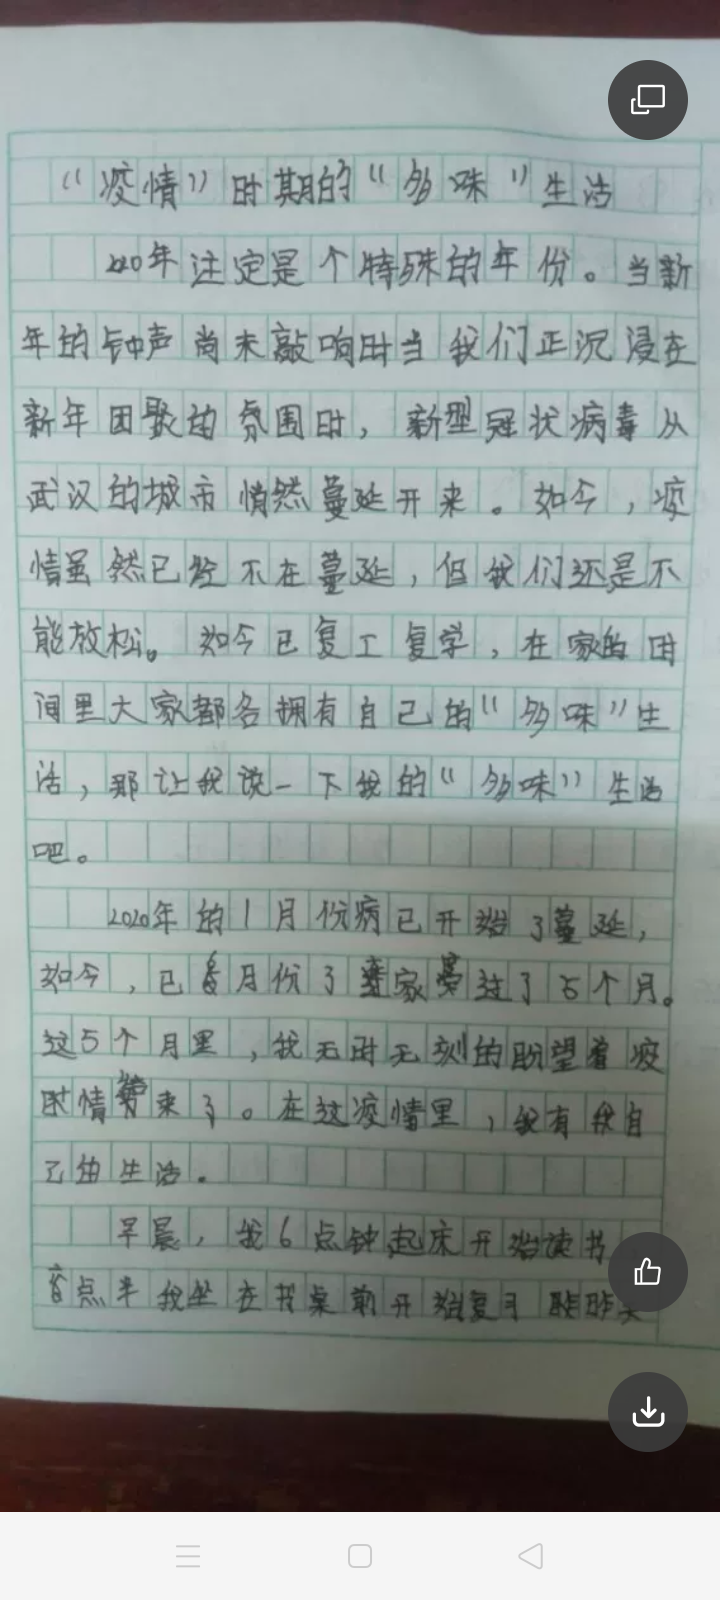 “疫情”时期的“多味”生活
2020年注定是个特殊的年份。当新
年的钟声尚未敲响时当我们正沉浸在
新年团聚的氛围时，新型冠状病毒从
武汉的城市悄然蔓延开来。如今，疫
情虽然已经不在蔓延，但我们还是不
能放松。如今已复工复学，在家的时
间里大家都各拥有自己的“多味”生
活，那让我说一下我的“多味”生活
吧。
2020年的1月份病已开始了蔓延，
如今，已6月份了 家 过了5个月。
这5个月里，我无时无刻的盼望着疫
时情 来了。在这疫情里，我有我自
己的生活。
早晨，我6点钟起床开始读书
点半我坐在书桌前开始复习